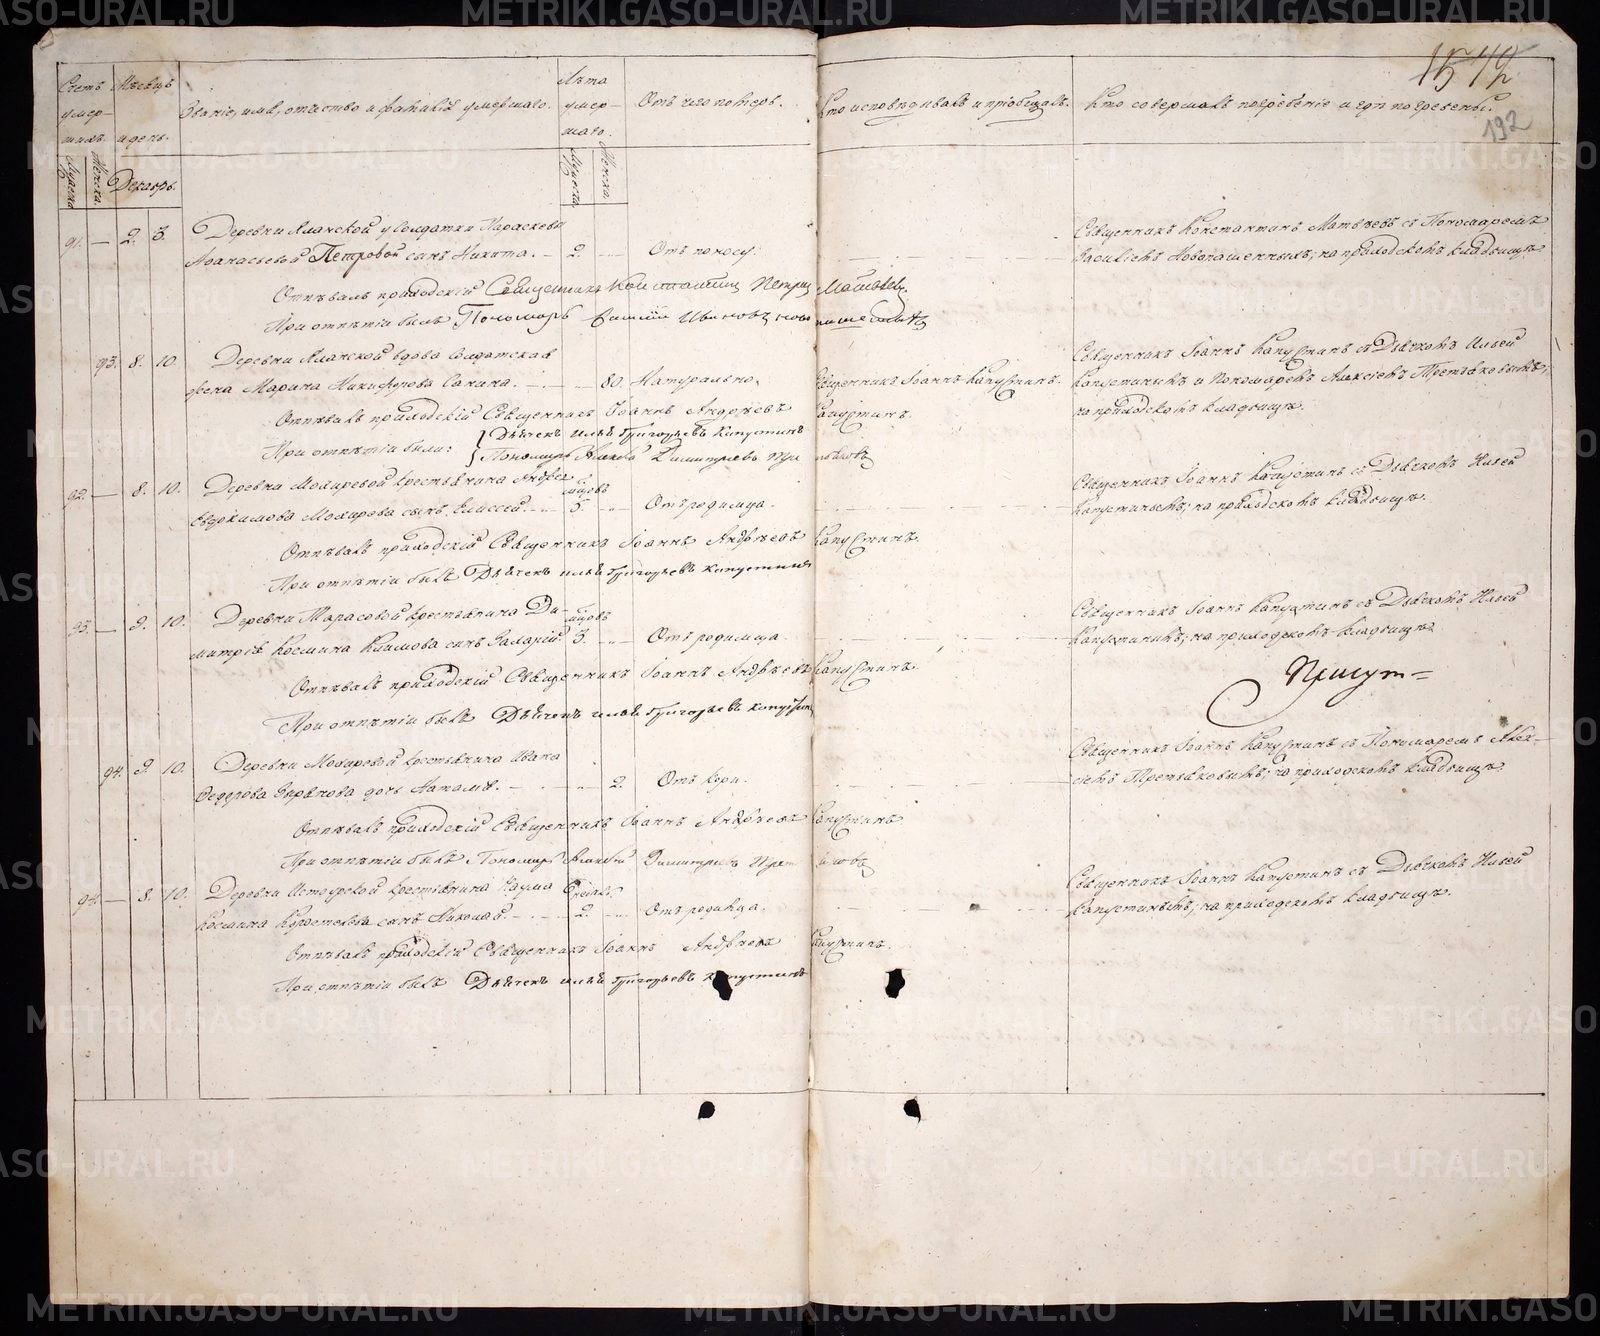 METRIKI.GASO-URAL.RU
15 42
192
Счетъ умер-шихъ.
Мѣсяцъ и день.
Званіе, имя, отчество и фамилія умершаго.
Лѣта умер-шаго.
Отъ чего померъ.
Кто исповѣдывалъ и пріобщалъ.
Кто совершалъ погребеніе и гдѣ погребены.
Мужска. Женска. Декабрь. Мужска. Женска.
91. — 2. 3. Деревни Яланской у солдатки Параскевы
Аѳанасьевой Петровой сынъ Никита. — 2. Отъ поносу.
Священникъ Константинъ Матвѣевъ съ Пономаремъ
Василіемъ Новопашеннымъ; на приходскомъ кладбищѣ.
Отпѣвалъ приходскій Священникъ Константинъ Петровъ Матвѣевъ.
При отпѣтіи былъ Пономарь Василій Ивановъ Новопашенныхъ
93. 8. 10. Деревни Яланской вдова солдатская
жена Марина Никифорова Санина. — 80. Натурально.
Священникъ Іоаннъ Капустинъ.
Священникъ Іоаннъ Капустинъ съ Дьячкомъ Ильей
Капустинымъ и Пономаремъ Алексіемъ Третьяковымъ;
на приходскомъ кладбищѣ.
Отпѣвалъ приходскій Священникъ Іоаннъ Андреевъ Капустинъ.
При отпѣтіи были: Дьячекъ Илья Григорьевъ Капустинъ
Пономарь Алексей Димитріевъ Третьяковъ
92. — 8. 10. Деревни Мохиревой крестьянина Андрея
Евдокимова Мохирева сынъ Елиссей. — мѣсяцовъ 5. Отъ родимца.
Священникъ Іоаннъ Капустинъ съ Дьячкомъ Ильей
Капустинымъ; на приходскомъ кладбищѣ.
Отпѣвалъ приходскій Священникъ Іоаннъ Андреевъ Капустинъ.
При отпѣтіи былъ Дьячекъ Илья Григорьевъ Капустинъ
93. — 9. 10. Деревни Тарасовой крестьянина Ди-
митрія Космина Климова сынъ — мѣсяцовъ 3. Отъ родимца.
Священникъ Іоаннъ Капустинъ съ Дьячкомъ Ильей
Капустинымъ; на приходскомъ кладбищѣ.
Отпѣвалъ приходскій Священникъ Іоаннъ Андреевъ Капустинъ.
При отпѣтіи былъ Дьячекъ Илья Григорьевъ Капустинъ
Присут=
94. 9. 10. Деревни Мохиревой крестьянина Ивана
Федорова дочь Наталья. — 2. Отъ кори.
Священникъ Іоаннъ Капустинъ съ Пономаремъ Алек-
сіемъ Третьяковымъ; на приходскомъ кладбищѣ.
Отпѣвалъ приходскій Священникъ Іоаннъ Андреевъ Капустинъ.
При отпѣтіи былъ Пономарь Алексей Димитріевъ Третьяковъ
94. — 8. 10. Деревни крестьянина Наума
Космина сынъ Николай. — 2. Отъ родимца.
Священникъ Іоаннъ Капустинъ съ Дьячкомъ Ильей
Капустинымъ; на приходскомъ кладбищѣ.
Отпѣвалъ приходскій Священникъ Іоаннъ Андреевъ Капустинъ.
При отпѣтіи былъ Дьячекъ Илья Григорьевъ Капустинъ